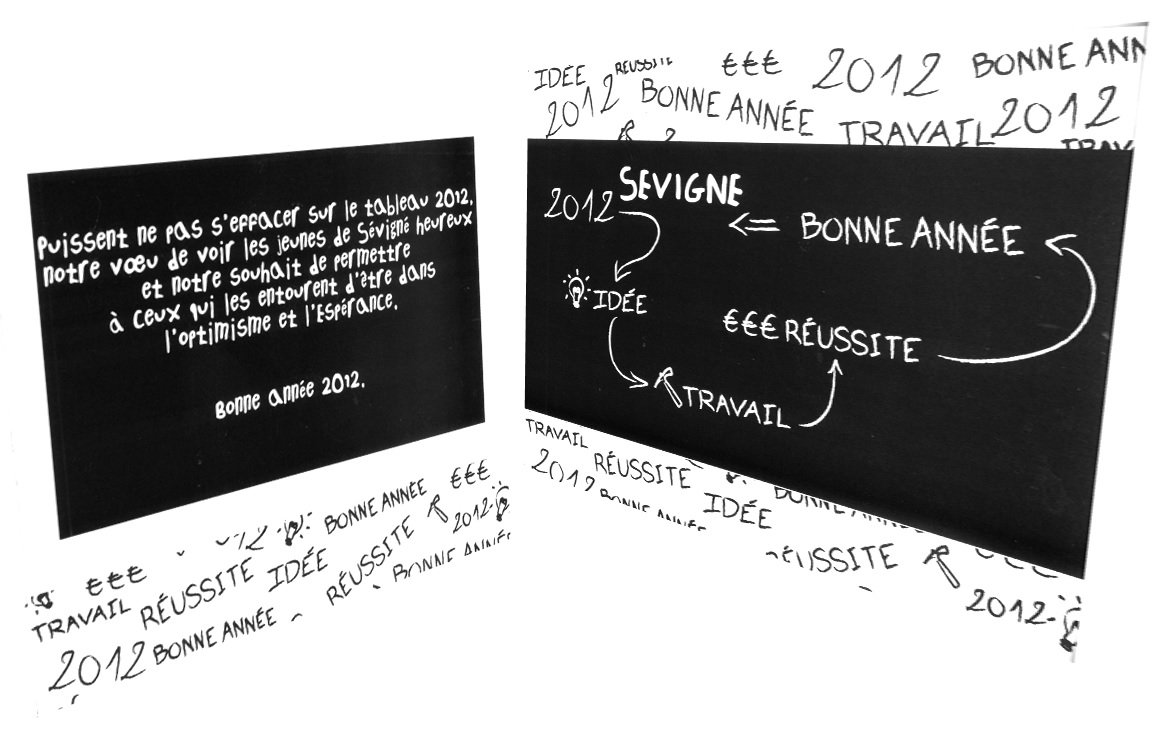 Puissent ne pas s'effacer sur le tableau 2012,
notre vœu de voir les jeunes de Sévigné heureux
et notre souhait de permettre
à ceux qui les entourent d'être dans
l'optimisme et l'Espérance.
Bonne année 2012.
€€€
2012
BONNE ANNÉE
€€€
TRAVAIL
RÉUSSITE
IDÉE
RÉUSSITE
2012
2012
BONNE ANNÉE
BONNE ANNÉE
IDÉE
RÉUSSITE
€€€
2012
BONNE ANN
2012
BONNE ANNÉE
TRAVAIL
2012
TRAV
SEVIGNE
2012
<= BONNE ANNÉE
IDÉE
€€€ RÉUSSITE
TRAVAIL
TRAVAIL
2012
RÉUSSITE
BONNE ANNÉE
IDÉE
BONNE ANNÉE
RÉUSSITE
2012